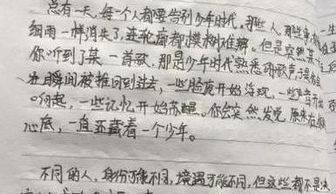 总有一天,每一个人都要告别少年时代,那些人,那些事
细雨一样消失了,连轮廓都模糊难辨,但是突然某一
你听到了某一首歌,那是少年时代熟悉的歌声,
瞬间被推回到过去,一些脸庞开始浮现,一些
响起,一些记忆开始苏醒。你会突然发觉,原来在
心底,一直要藏着一个少年。
不同的人,身份可能不同,境遇可能不同,但这些都不是